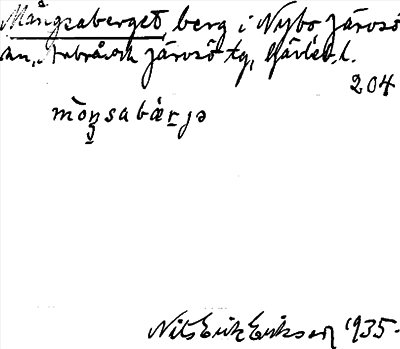 Mångsaberget berg i Nybo Järvsö
sn, Arbrå och Järvsö tg, Gävleb. l.
204
mòŋsabærjə
Nils Erik Eriksson 1935.